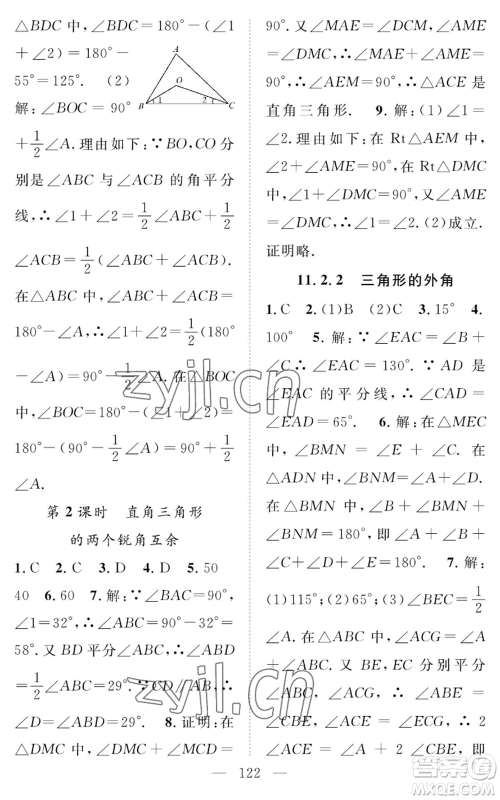 △BDC 中，∠BDC = 180° −
(∠1 + ∠2) = 180° −
55° = 125°. (2)
解：∠BOC = 90°
A
O
1
2
B
C
+ 1/2 ∠A. 理由如下：∵ BO, CO 分
别是∠ABC 与∠ACB 的角平分
线，∴ ∠1 + ∠2 = 1/2 ∠ABC + 1/2
∠ACB = 1/2 (∠ABC + ∠ACB).
在△ABC 中，∴ 1/2 (180°
− ∠A) = 90° − 1/2 ∠A. 在△BOC
中，∠BOC = 180° −
180° − (90° − 1/2 ∠A) = 90° + 1/2
∠A.
第 2 课时 直角三角形
的两个锐角互余
1. C 2. C 3. D 4. D 5. 50
40 6. 60 7. 解：∵ ∠BAC = 90°,
∠1 = 32°, ∴ ∠ABC = 90° − 32° =
58°. 又 BD 平分∠ABC, ∴ ∠ABD
= 1/2 ∠ABC = 29°. ∴
∠D = ∠ABD = 29°. 8. 证明：在
△DMC 中，∠DMC + ∠MCD =
90°. 又∵ ∠MAE = ∠DCM, ∠AME
= ∠DMC, ∴ ∠MAE + ∠AME =
90°. ∴ ∠AEM = 90°. ∴ △ACE 是
直角三角形. 9. 解：(1) ∠1 =
∠2. 理由如下：在 Rt△AEM 中，
∠2 + ∠AME = 90°. 在 Rt△DMC
中，∠1 + ∠DMC = 90°. 又∠AME
= ∠DMC, ∴ ∠1 = ∠2. (2) 成立.
证明略.
11.2.2 三角形的外角
1. C 2. (1)B (2)C 3. 15° 4.
100° 5. 解：∵ ∠EAC = ∠B +
∠C, ∴ ∠EAC = 130°. ∵ AD 是
∠EAC 的平分线，∴ ∠CAD =
∠EAD = 65°. 6. 解：在△MEC
中，∠BMN = ∠E + ∠C. 在
△ADN 中，∠BNM = ∠A + ∠D.
在△BMN 中，∠B + ∠BMN +
∠BNM = 180°, ∴ ∠A + ∠B +
∠C + ∠D + ∠E = 180°. 7. 解：
(1) 115°; (2) 35°; (3) ∠BEC = 1/2
∠A. 在△ABC 中，∠ACG = ∠A
+ ∠ABC. 又 BE, EC 分别平分
∠ABC, ∠ACG, ∴ ∠ACE =
1/2 ∠ACG, ∠CBE = 1/2 ∠ABC, ∴
∠ACE = 1/2 ∠A + ∠CBE, 即
122
zyjl.cn
zyjl.cn
作业精灵